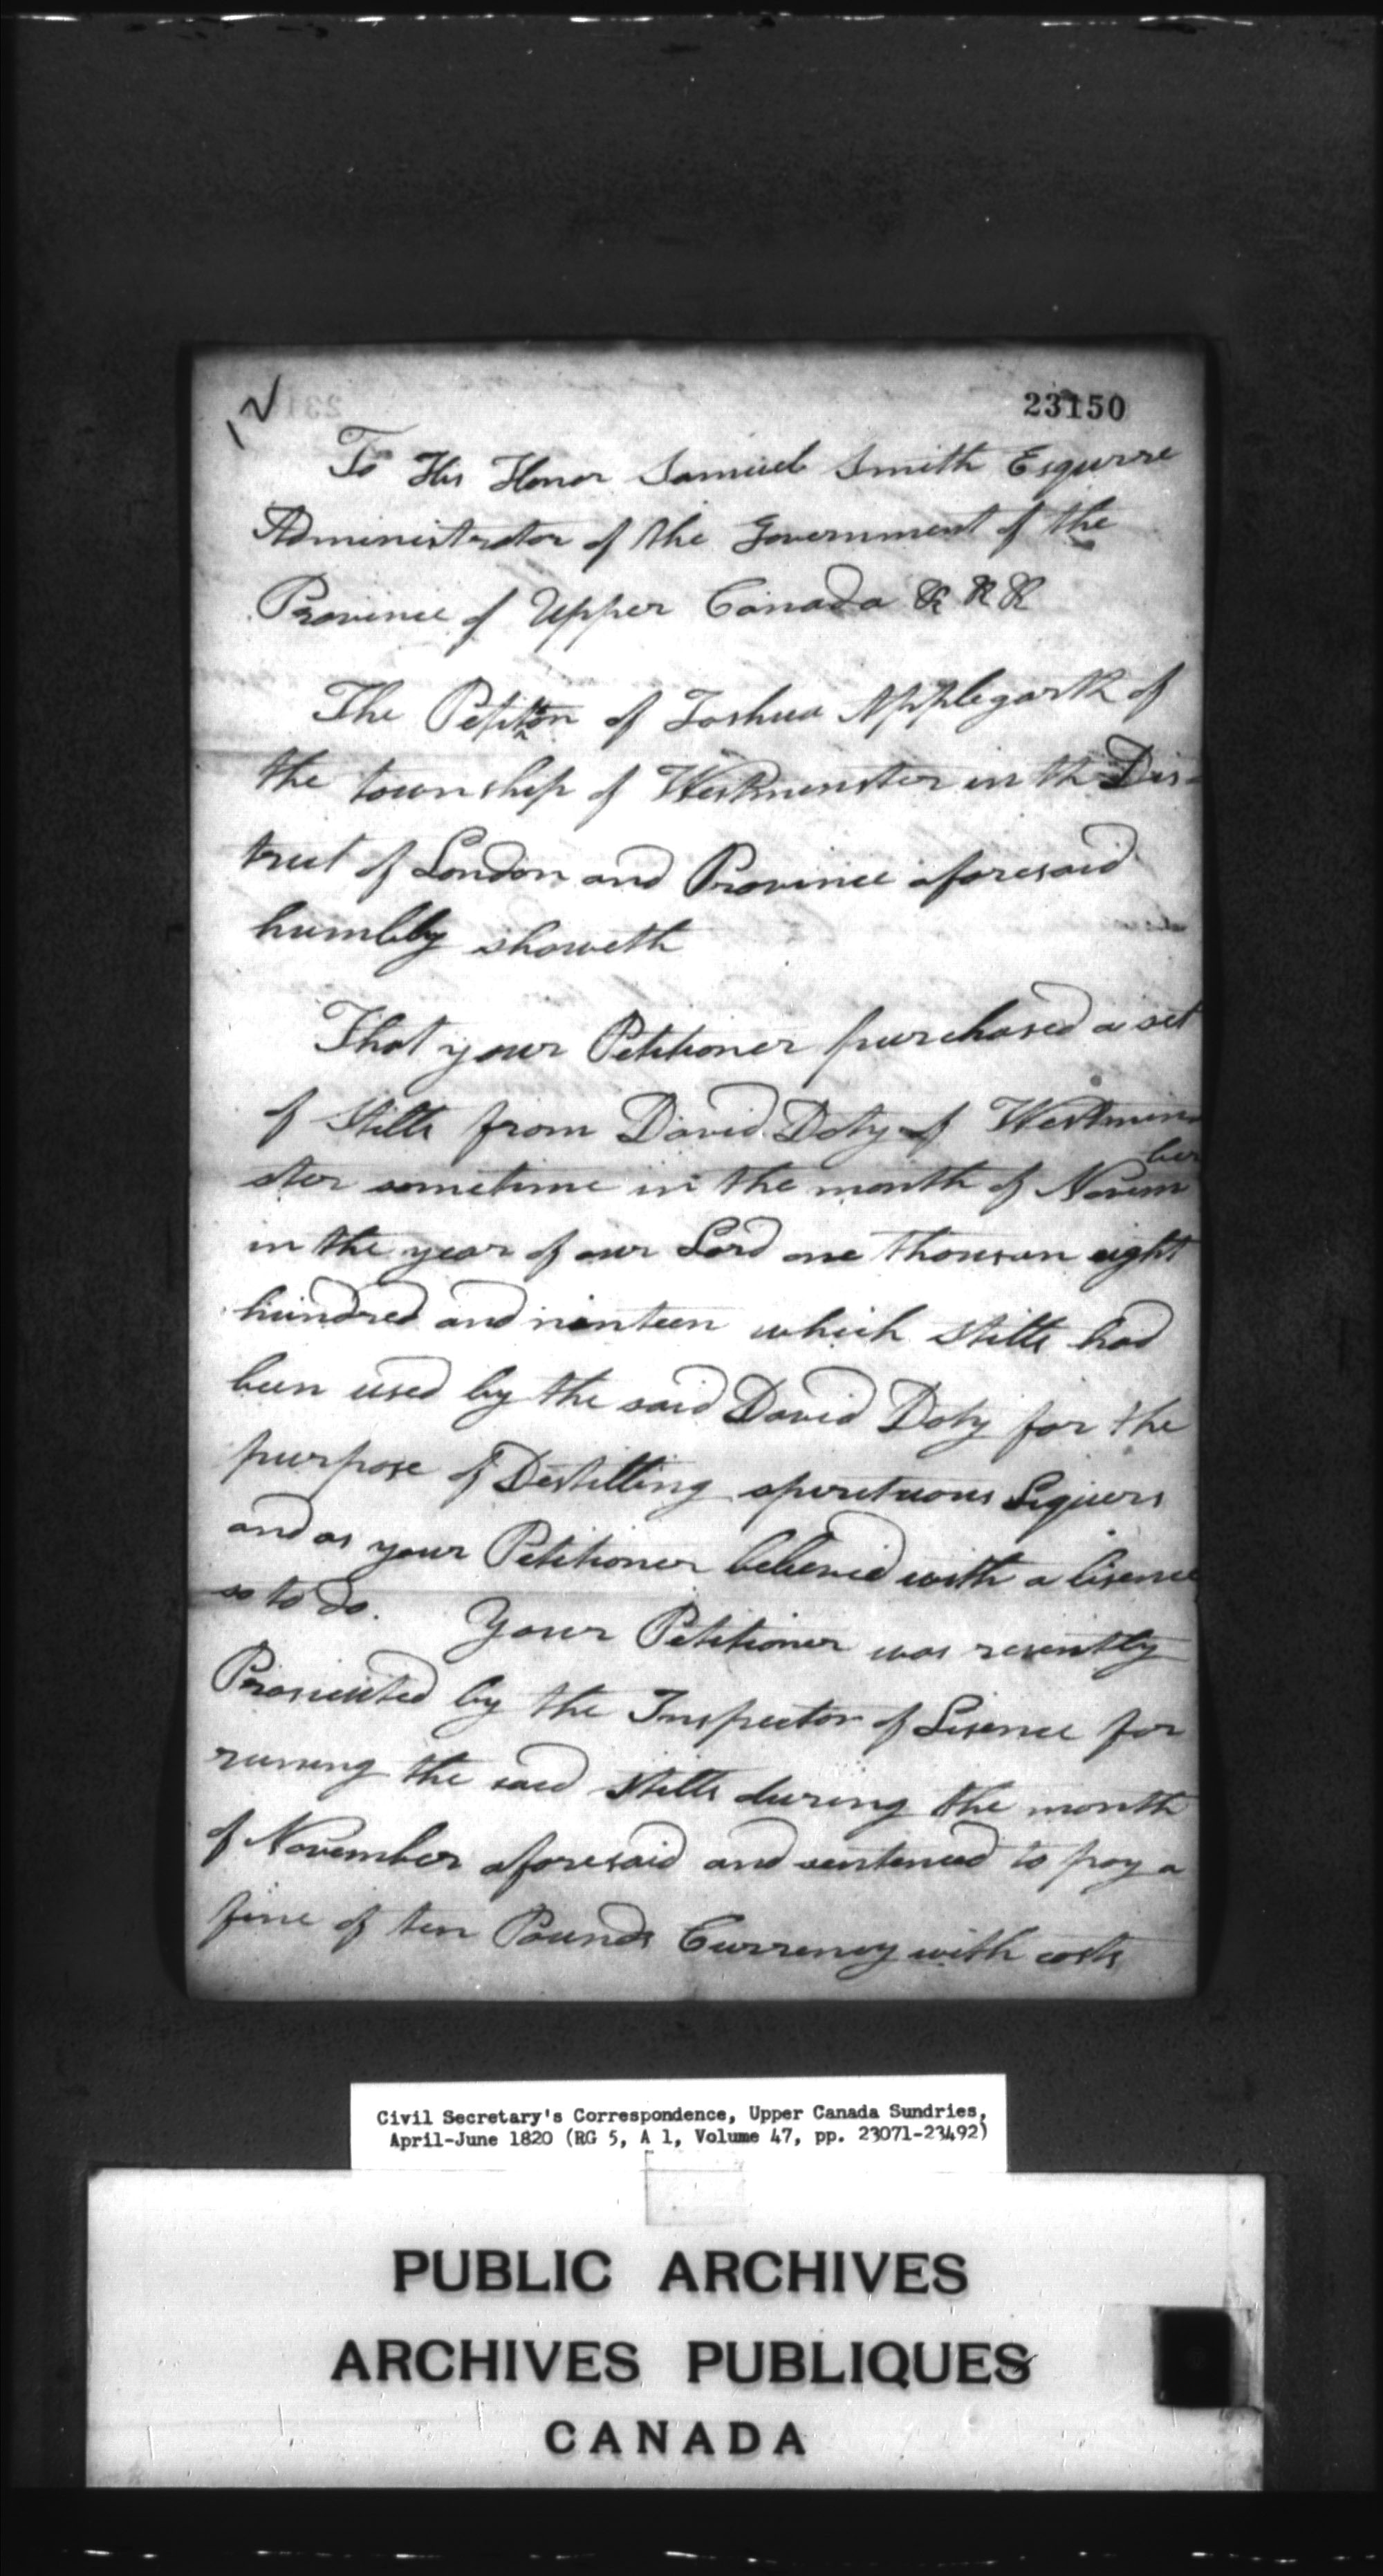 12
23150
To His Honor Samuel Smith Esqurre
Administrator of the Government of the
Province of Upper Canada & & &
The Petition of Joshua Applegarth of
the township of Westminster in the Dis-
trict of London and Province aforesaid
humbly showeth
That your Petitioner purchased a set
of Stills from David Doty of Westmin
ster sometime in the month of November
in the year of our Lord one thousan eight
hundred and ninteen which Stills had
been used by the said David Doty for the
purpose of Destilling spirituous Liquers
and as your Petitioner believed with a lisence
so to do. Your Petitioner was recently
Prosicuted by the Inspector of Lisence for
runing the said Stills during the month
of November aforesaid and sentenced to pay a
fine of ten Pounds Currency with costs
Civil Secretary's Correspondence, Upper Canada Sundries,
April-June 1820 (RG 5, A 1, Volume 47, pp. 23071-23492)
PUBLIC ARCHIVES
ARCHIVES PUBLIQUES
CANADA